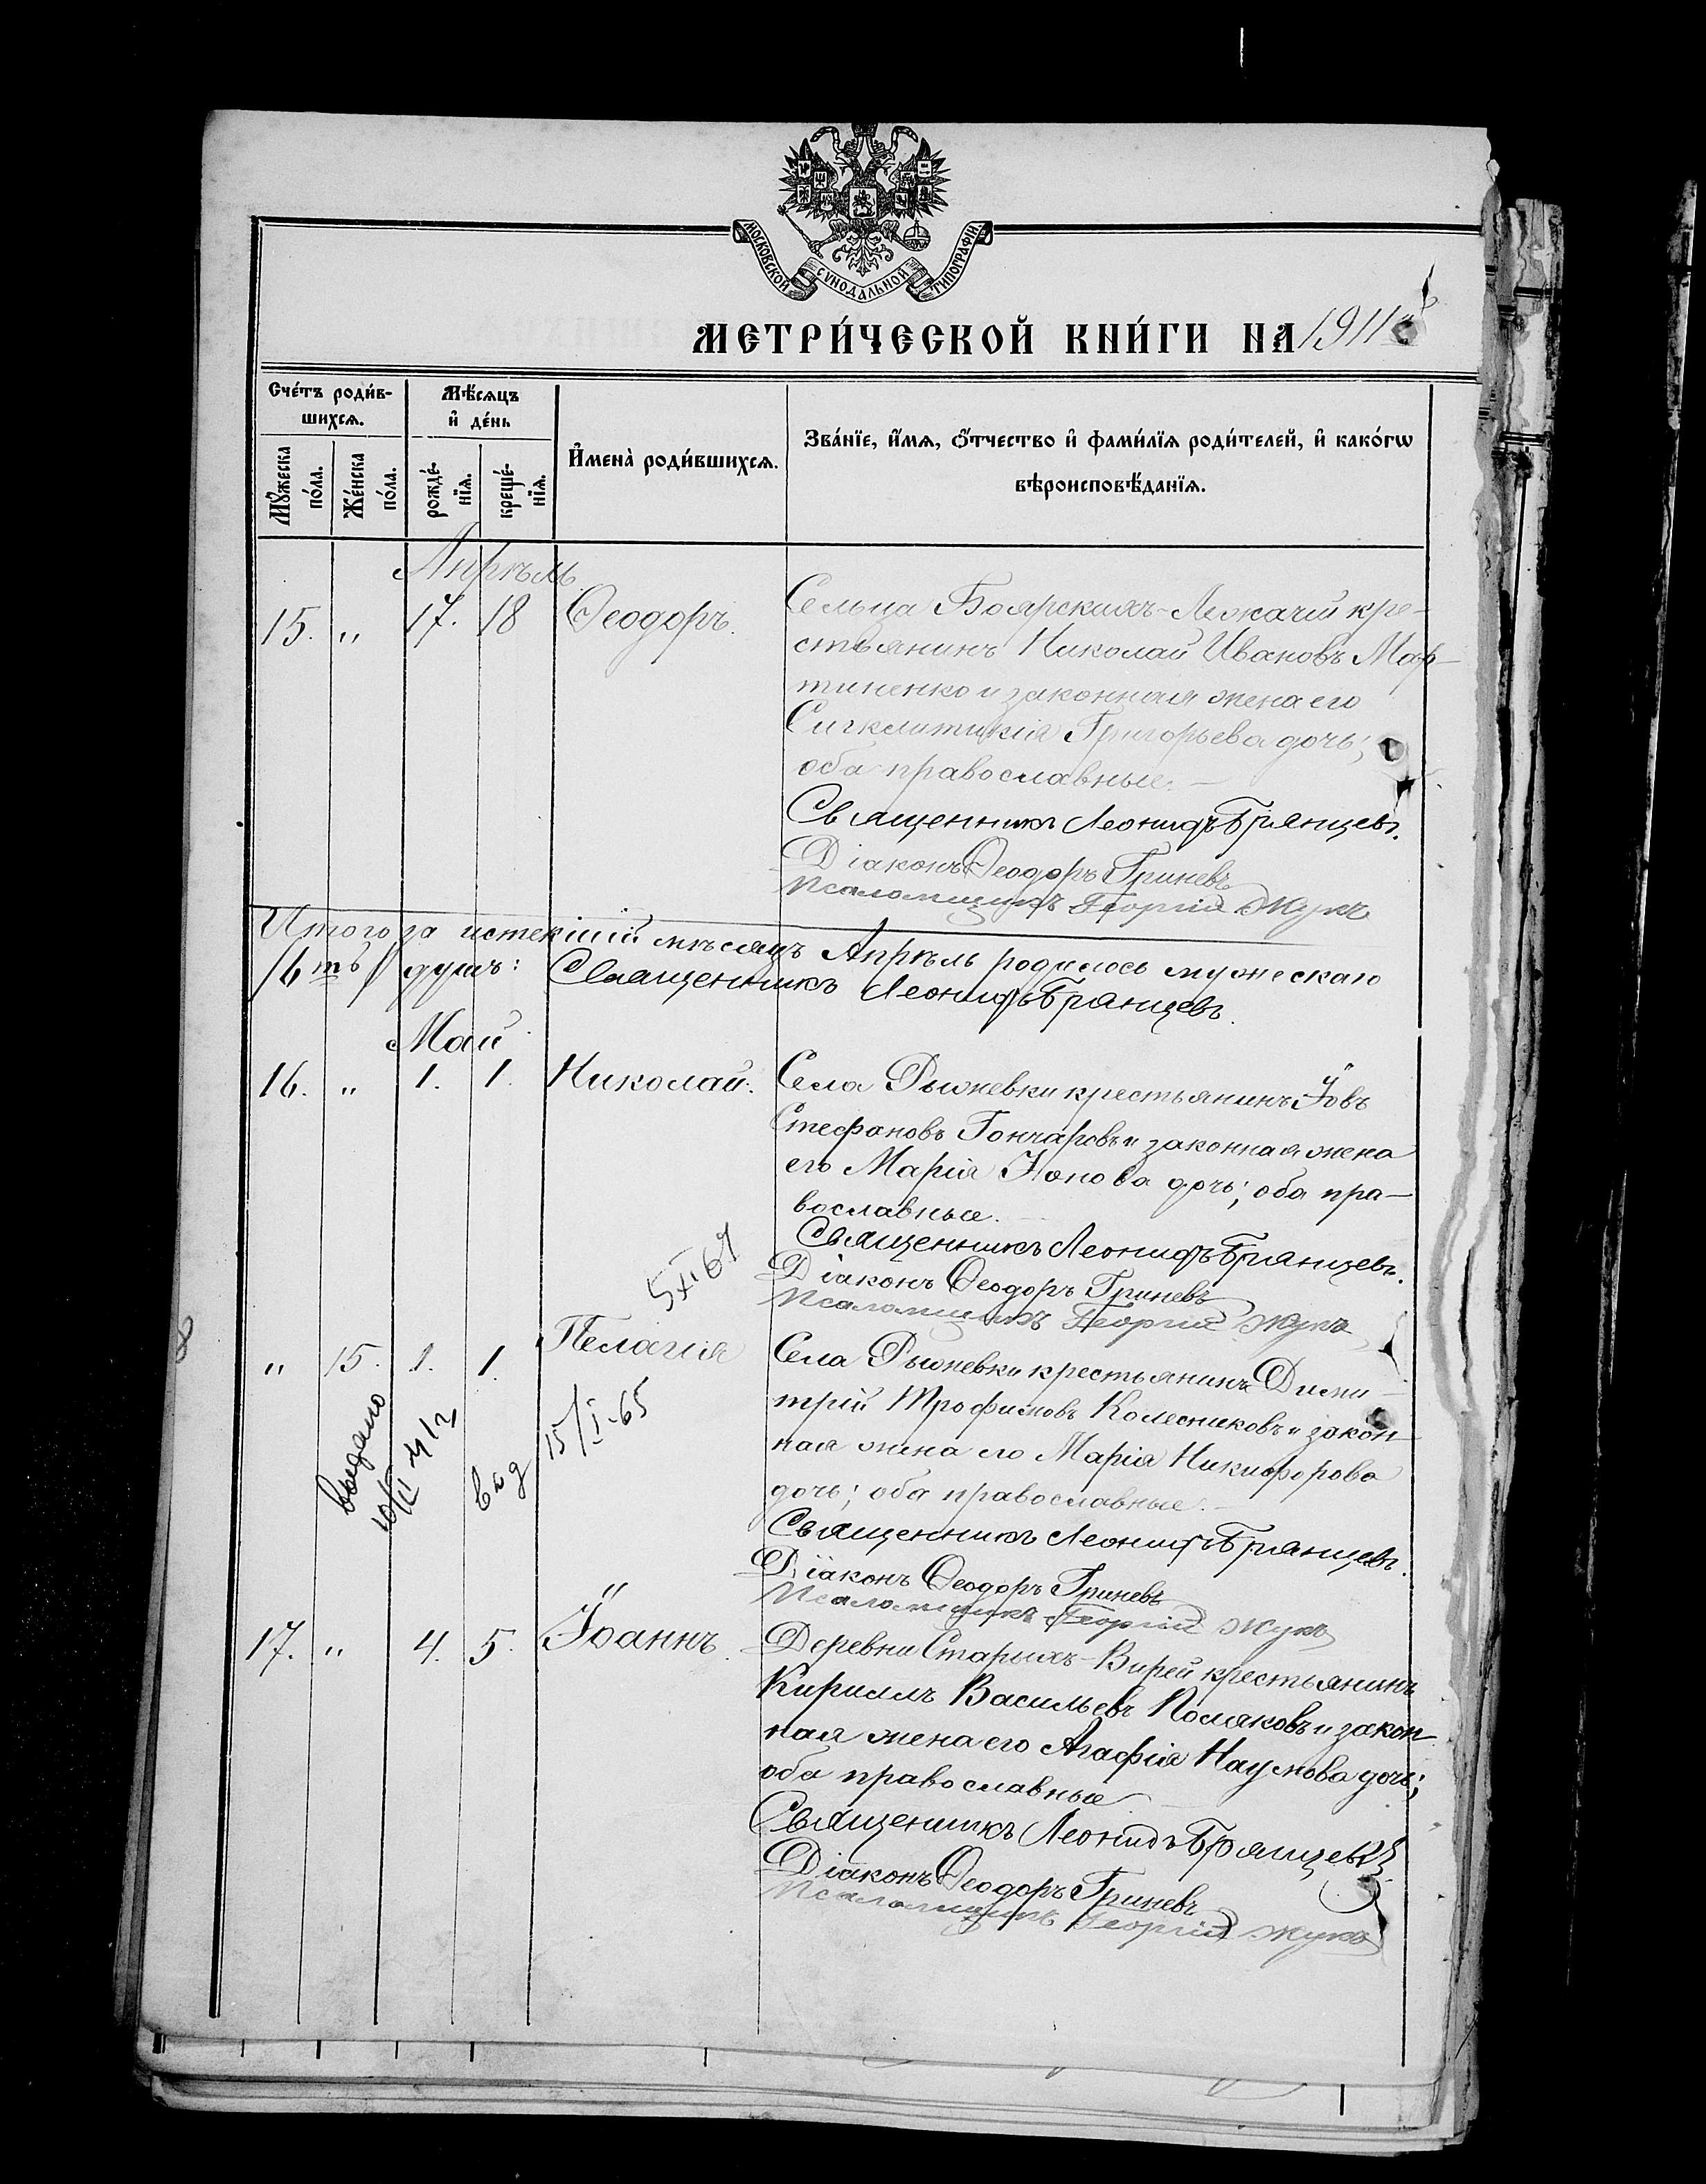 МОСКОВСКОЙ СѴНОДАЛЬНОЙ ТИПОГРАФІИ
МЕТРИ́ЧЕСКОЙ КНИ́ГИ НА 1911
Сче́тъ роди́в-
шихсѧ.
Мѣ́сѧцъ
и҆ де́нь
И҆мена̀ роди́вшихсѧ.
Зва́нїе, и҆́мѧ, ѻ҆́тчество и҆ фами́лїѧ роди́телей, и҆ како́гѡ
вѣроисповѣ́данїѧ.
Мꙋ́жеска
по́ла.
Же́нска
по́ла.
рожде́-
нїѧ.
креще́-
нїѧ.
Апрѣль
15. " 17. 18 Ѳеодоръ.
Сельца Боярскихъ-Лежачій кре-
стьянинъ Николай Ивановъ Мар-
тиненко и законная жена его
Сигклитикія Григорьева дочь;
оба православные.
Священникъ Леонидъ Брянцевъ.
Діаконъ Ѳеодоръ Гриневъ
Псаломщикъ Георгій Жукъ
Итого за истекшій мѣсяцъ Апрѣль родилось мужескаго
душъ: Священникъ Леонидъ Брянцевъ.
Май
16. " 1. 1. Николай.
Села Рыжевки крестьянинъ Іовъ
Стефановъ Гончаровъ и законная жена
его Марія Іонова дочь; оба пра-
вославные.
Священникъ Леонидъ Брянцевъ.
Діаконъ Ѳеодоръ Гриневъ
Псаломщикъ Георгій Жукъ
" 15. 1. 1. Пелагия
15/I-65
выдано
Села Рыжевки крестьянинъ Дими-
трій Трофимовъ Колесниковъ и закон-
ная жена его Марія Никифорова
дочь; оба православные.
Священникъ Леонидъ Брянцевъ.
Діаконъ Ѳеодоръ Гриневъ
Псаломщикъ Георгій Жукъ
17. " 4. 5. Іоаннъ.
Деревни Старыхъ-Вирей крестьянинъ
Кириллъ Васильевъ Поляковъ и закон-
ная жена его Агафія Наумова дочь;
оба православные
Священникъ Леонидъ Брянцевъ
Діаконъ Ѳеодоръ Гриневъ
Псаломщикъ Георгій Жукъ